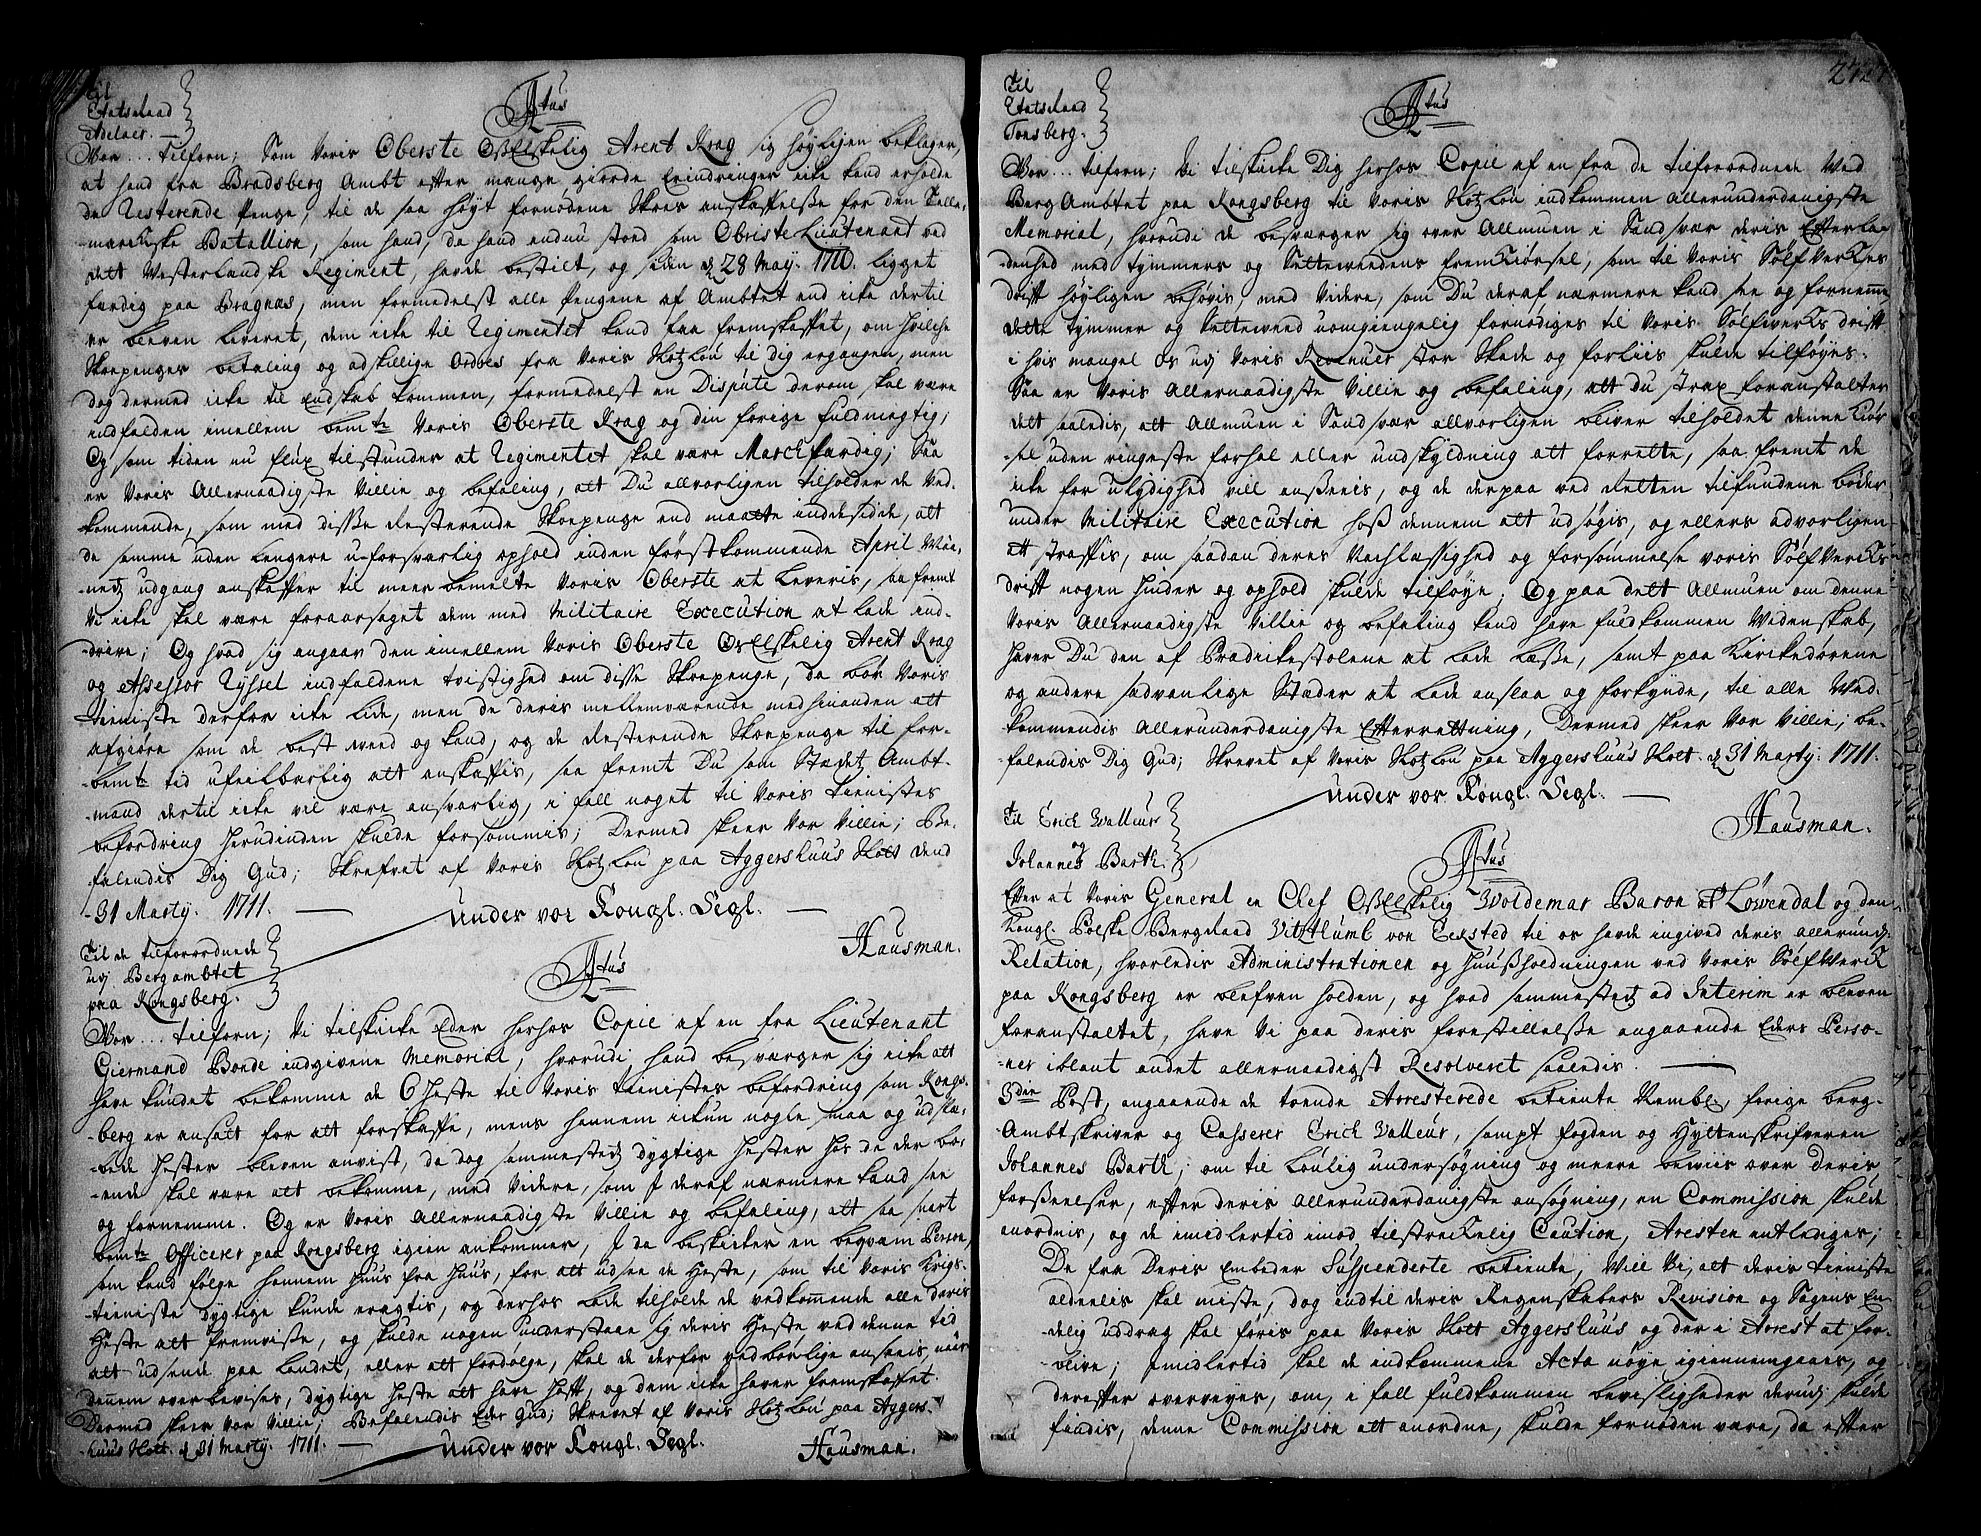 Til
Etatsraad
Adelaer.
F4tus
Vor... tilforn; Som Voris Oberste OßElskelig Arent Krag sig høyligen beklager,
at hand fra Bradsberg Ambt efter mange giorde Erindringer icke kand erholde
de Resterende Penge, til de saa høyt fornødene Skoes anskaffelse for den Telle-
-marckske Batallion, som hand, da hand endnu stod som ObristeLieutenant ved
dett Vesterlandske Regiment, hafde bestilt, og siden d 28 May. 1710. ligget
færdig paa Bragnæs, men formedelst alle Pengene af Ambtet end icke dertil
er bleven leveret, dem icke til Regimentet kand faa fremskaffet, om hvilche
Skoepenges betaling og adskillige Ordres fra Voris Slotzlou til dig ergangen, men
dog dermed icke til Endskab kommen, formedelst en Dispute derom skal være
indfalden imellem bemte Voris Oberste Krag og din forige fuldmegtig;
Og som tiden nu flux tilstunder at Regimentet skal være Marchfærdig; Saa
er Voris Allernaadigste Villie og befaling, att Du allvorligen tilholder de Ved-
kommende, som med disse Resterende Skoepenge end maatte indesidde, att
de samme uden lengere u-forsvarlig ophold inden førstkommende April Maa-
-netz udgang anskaffer til meerbemelte Voris Oberste at leveris, saa fremt
Vi icke skal være foraarsaget dem med Militaire Execution at lade ind-
-drive; Og hvad sig angaar den imellem Voris Oberste OsElskelig Arent Krag
og Assessor Ryssel indfaldene tvistighed om disse Skoepenge, da bør Voris
tieniste derfor icke lide, men de deris mellemværende med hinanden att
afgiøre som de best veed og kand, og de Resterende Skoepenge til for-
-bemte tid ufeilbarlig att anskaffis, saa fremt Du som Stædets Ambt-
-mand dertil icke vil være ansvarlig, i fall noget til Voris tienistes
befordring herudinden skulde forsømmis; Dermed skeer Vor Villie; Be-
falendis Dig Gud; Skrefvet af Voris Slotzlou paa Aggershuus Slott dend
31 Marty. 1711.
Under vor Kongl. Segl.
Hausman.
Til de tilforordnede
udj Bergambtet
paa Kongsberg.
F4tus
Vor... tilforn; Vi tilskicke Eder herhos Copie af en fra Lieutenant
Giermand Bonde indgivene Memorial, hvorudi hand besværger sig icke att
have kundet bekomme de 6 heste til Voris tienistes befordring som Kongs-
-berg er ansatt for att forskaffe, mens hannem ickun nogle smaa og udslæ-
-bede hester bleven anvist, da dog sammesteds dygtige hester hos de der bo-
-ende skal være att bekomme, med Videre, som I deraf nærmere kand see
og fornemme. Og er Voris Allernaadigste Villie og befaling, att saa snart
bemte Officerer paa Kongsberg igien ankommer, I da beskicker en begvam Person,
som kand følge hannem huus fra huus, for att udsee de heste, som til Voris Krigs-
-tieniste dygtige kunde eragtis, og derhos lade tilholde de vedkommende alle deris
heste att fremvise, og skulde nogen understaae sig deris heste ved denne tid
att udsende paa landet, eller att fordølge, skal de derfor vedbørlige ansees naar
dennem overbevises, dygtige heste att have hafft, og dem icke haver fremskaffet.
Dermed skeer Vor Villie; Befalendis Eder Gud; Skrevet af Voris Slotzlou paa Aggers-
huus Slott. d 31 Marty. 1711.
Under vor Kongl. Segl.
Hausman.
272
Til
Etatsraad
Tonsberg.
F4tus
Vor... tilforn; Vi tilskicke Dig herhos Copie af en fra de tilforordnede Ved
BergAmbtet paa Kongsberg til Voris Slotzlou indkommen Allerunderdanigste
Memorial, hvorudi de besværger sig over Allmuen i Sandsvær deris Efterla-
-denhed med tymmers og Setteveedens fremkiørsel, som til Voris SølfVerckes
drifft høyligen behøvis, med Videre, som Du deraf nærmere kand see og fornemme
dette tymmer og Setteveed uomgiengelig fornødiges til Voris Sølfvercks drifft
i hvis mangel Os udj Voris Revenuer stor Skade og forliis skulde tilføyes.
Saa er Voris Allernaadigste Villie og befaling, att Du strax foranstalter
det saaledis, att Allmuen i Sandsvær allvorligen bliver tilholdet denne Kiør-
-sel uden ringeste forhal eller undskyldning att forrette, saa fremt de
icke for ulydighed vill ansees, og de derpaa ved Retten tilfundene bøder
under Militaire Execution hoss dennem att udsøgis, og ellers advorligen
att straffis, om saadan deres Nachlæssighed og forsømmelse Voris SølfVercks
drifft nogen hinder og ophold skulde tilføye; Og paa dett Allmuen om denne
Voris Allernaadigste Villie og befaling kand have fuldkommen Videnskab,
haver Du den af Prædickestolene at lade læsse, samt paa Kirckedørene
og andre sædvanlige Stæder at lade anslaa og forkynde, til alle Ved-
kommendis Allerunderdanigste Efterrettning, Dermed skeer Vor Villie; be-
falendis Dig Gud; Skrevet af Voris Slotzlou paa Aggershuus Slott. d 31 Marty. 1711.
Under vor Kongl. Segl.
Hausman.
Til Erich Valleur
og
Johannes Barth.
F4tus
Efter at Voris General en Chef OßElskelig Woldemar Baron af Løwendal og den
Kongl. Polske Bergraad Vitzthumb von Ecksted til os hafde ingived deris allerund:
Relation, hvorledis Administrationen og huußholdningen ved Voris SølfVerck
paa Kongsberg er blefven holden, og hvad sammesteds ad Interim er bleven
foranstaltet, have Vi paa deris forestillelse angaaende Eders Perso-
-ner iblant andet allernaadigst Resolveret saaledis.
3die Post, angaaende de tvende Arresterede betiente Nembl. forige berg-
-Ambtskriver og Casserer Erich Valleur, sampt fogden og Hyttenskrifveren
Johannes Barth; om til Loulig undersøgning og meere beviis over deris
forseelser, efter deris allerunderdanigste ansøgning, en Commission skulde
anordnis, og de imedlertid imod tilstreckelig Caution, Aresten entlediges;
De fra Deris Embeder Suspenderte betiente, Will Vi, att deris tieniste
aldeelis skal miste, dog indtil deris Regenskabers Revision og Sagens En-
-delig uddrag skal føris paa Voris Slott Aggershuus og der i Arrest at for-
-blive; imidlertid skal de indkommene Acta nøye igiennemgaaes, og
derefter overveyes, om, i fall fuldkommen bevisligheder derudj skulde
findis, denne Commission att anordne, skulde fornøden være, da efter